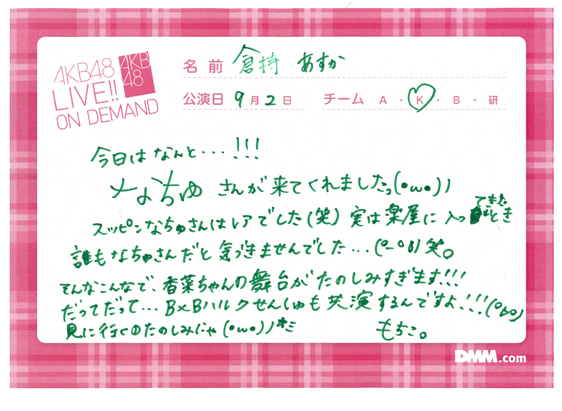 AKB48
LIVE!!
ON DEMAND
AKB
48
名前 倉持 あすか
公演日 9月2日 チーム A・K・B・研
今日は なんと・・・!!!
なちゅ さんが来てくれましたっ(・ω・)ノ
スッピンなちゅさんはレアでした(笑) 実は楽屋に入ってきたとき
誰もなちゅさんだと気づきませんでした…(°_°δ)笑。
そんなこんなで、香菜ちゃんの舞台がたのしみすぎます!!!
だってだって…B×Bハルクせんしゅも共演するんですよ!!!(°δ°)
見に行くのたのしみにゃ(・ω・)ノ*ミ
もちこ。
DMM.com